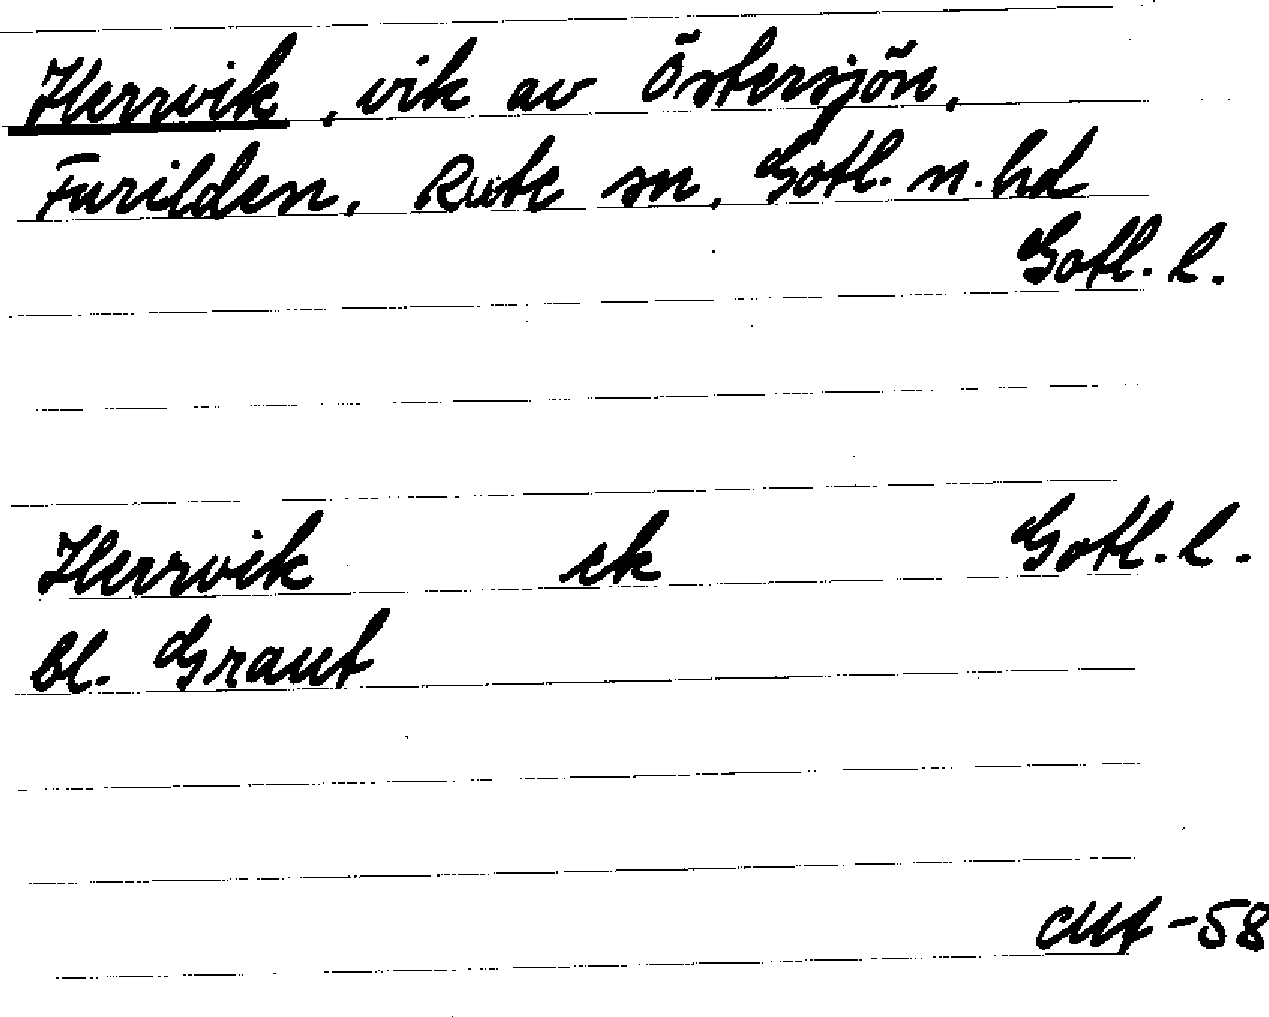 Herrvik, vik av Östersjön,
Furilden, Rute sn, Gotl. n. hd
Gotl. l.
Herrvik ek Gotl. l.
bl. Graut
-58